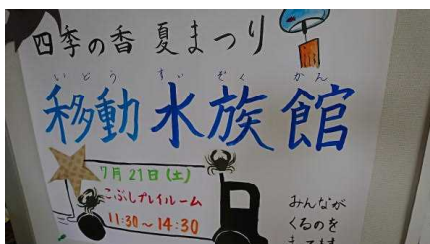 四季の香 夏まつり
いどう すいぞくかん
移動水族館
7月21日(土)
こぶしプレイルーム
11:30〜14:30
みんなが
くるのを